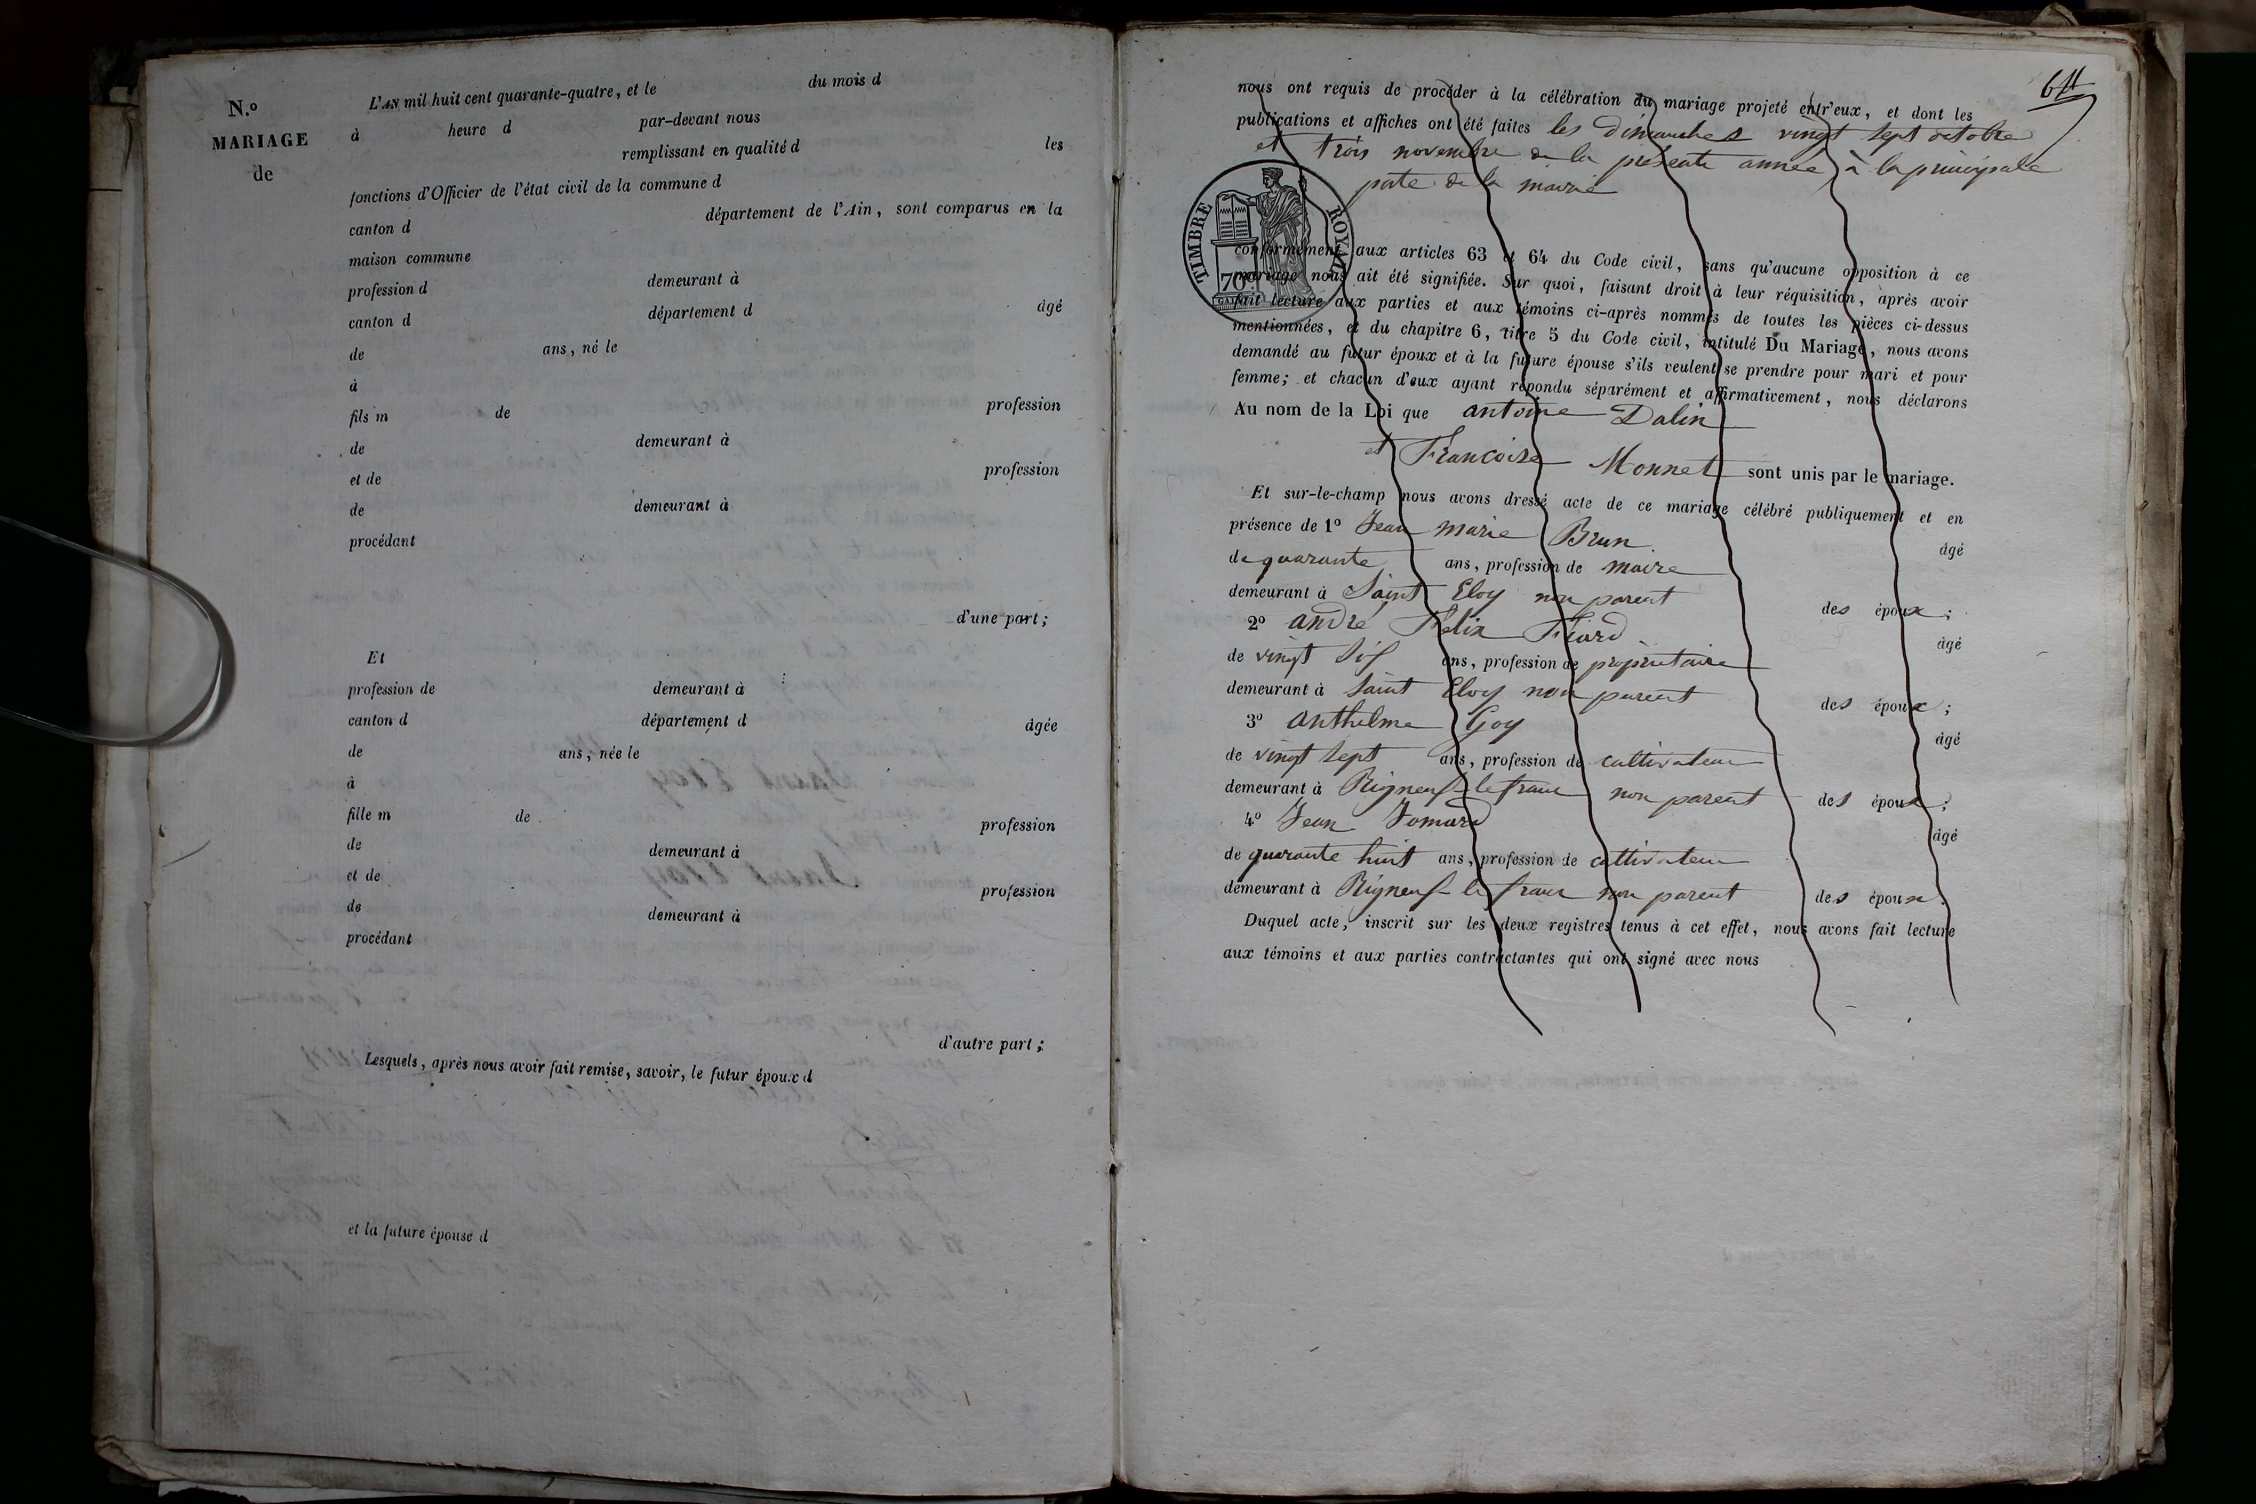 N.º
MARIAGE
de
L'AN mil huit cent quarante-quatre, et le du mois d
à heure d par-devant nous
remplissant en qualité d les
fonctions d'Officier de l'état civil de la commune d
canton d département de l'Ain, sont comparus en la
maison commune
profession d demeurant à
canton d département d âgé
de ans, né le
à
fils m de profession
de demeurant à
et de profession
de demeurant à
procédant
d'une part;
Et
profession de demeurant à
canton d département d âgée
de ans, née le
à
fille m de profession
de demeurant à
et de profession
de demeurant à
procédant
d'autre part;
Lesquels, après nous avoir fait remise, savoir, le futur époux d
et la future épouse d
nous ont requis de procéder à la célébration du mariage projeté entr'eux, et dont les
publications et affiches ont été faites les dimanches vingt sept octobre
et trois novembre de la présente année à la principale
porte de la mairie
TIMBRE ROYAL
70
conformément aux articles 63 et 64 du Code civil, sans qu'aucune opposition à ce
mariage nous ait été signifiée. Sur quoi, faisant droit à leur réquisition, après avoir
fait lecture aux parties et aux témoins ci-après nommés de toutes les pièces ci-dessus
mentionnées, et du chapitre 6, titre 5 du Code civil, intitulé Du Mariage, nous avons
demandé au futur époux et à la future épouse s'ils veulent se prendre pour mari et pour
femme; et chacun d'eux ayant répondu séparément et affirmativement, nous déclarons
Au nom de la Loi que antoine Dalin
et Francoise Monnet sont unis par le mariage.
Et sur-le-champ nous avons dressé acte de ce mariage célébré publiquement et en
présence de 1º Jean marie Brun âgé
de quarante ans, profession de maire
demeurant à Saint Eloy non parent des époux;
2º andré Félix Fiard âgé
de vingt six ans, profession de propriétaire
demeurant à Saint Eloy non parent des époux;
3º anthelme Goy âgé
de vingt sept ans, profession de cultivateur
demeurant à Rigneux le franc non parent des époux;
4º Jean Jomard âgé
de quarante huit ans, profession de cultivateur
demeurant à Rigneux le franc non parent des époux.
Duquel acte, inscrit sur les deux registres tenus à cet effet, nous avons fait lecture
aux témoins et aux parties contractantes qui ont signé avec nous